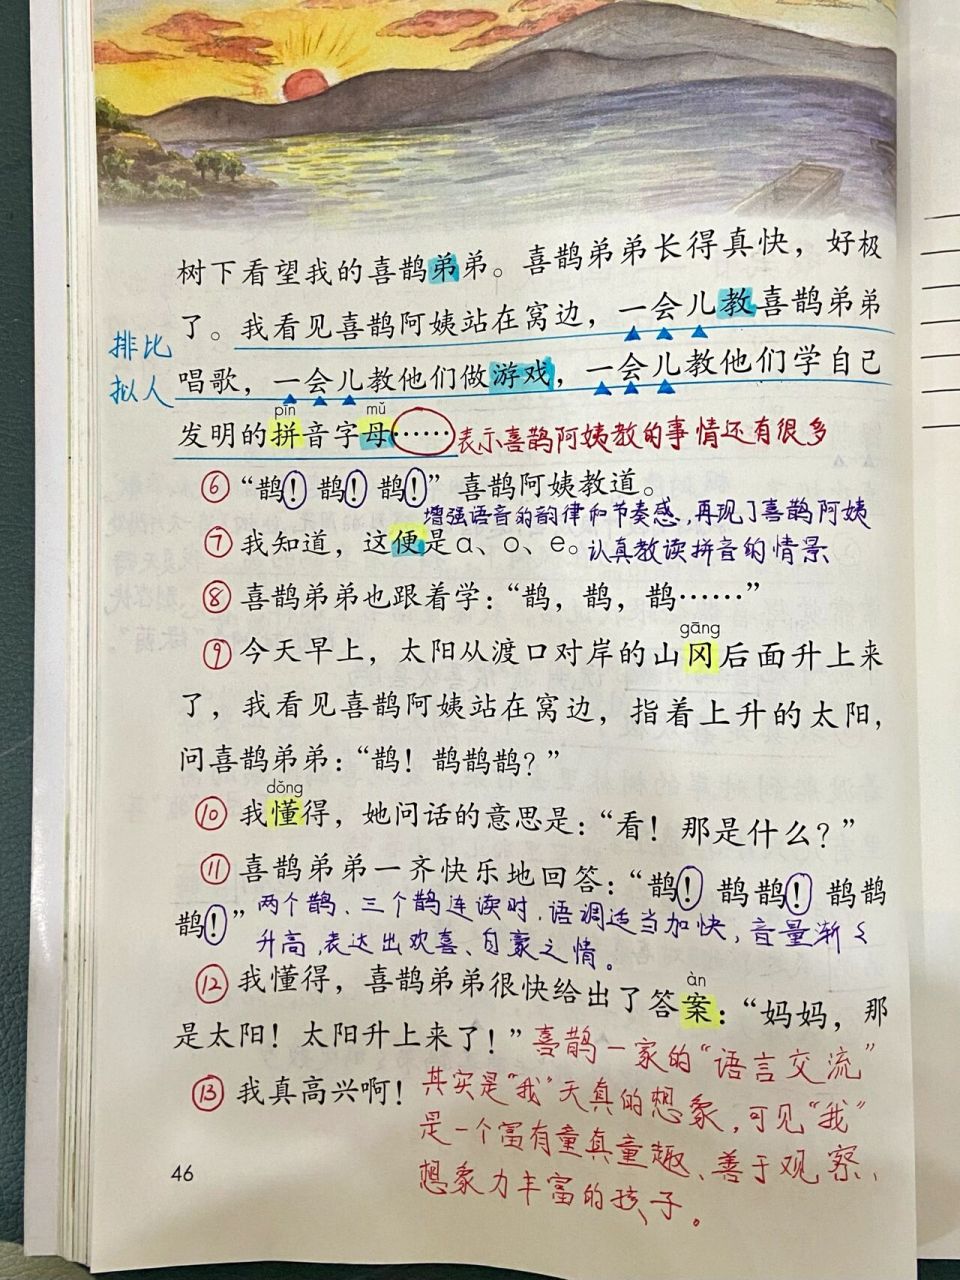 树下看望我的喜鹊弟弟。喜鹊弟弟长得真快，好极
了。我看见喜鹊阿姨站在窝边，一会儿教喜鹊弟弟
排比
拟人
唱歌，一会儿教他们做游戏，一会儿教他们学自己
pīn mǔ
发明的拼音字母……表示喜鹊阿姨教的事情还有很多
⑥“鹊！鹊！鹊！”喜鹊阿姨教道。
增强语音的韵律和节奏感，再现了喜鹊阿姨
⑦我知道，这便是a、o、e。认真教读拼音的情景
⑧喜鹊弟弟也跟着学：“鹊，鹊，鹊……”
gāng
⑨今天早上，太阳从渡口对岸的山冈后面升上来
了，我看见喜鹊阿姨站在窝边，指着上升的太阳，
问喜鹊弟弟：“鹊！鹊鹊鹊？”
dǒng
⑩我懂得，她问话的意思是：“看！那是什么？”
⑪喜鹊弟弟一齐快乐地回答：“鹊！鹊鹊！鹊鹊
鹊！”两个鹊、三个鹊连读时，语调适当加快，音量渐渐
升高，表达出欢喜、自豪之情。
àn
⑫我懂得，喜鹊弟弟很快给出了答案：“妈妈，那
是太阳！太阳升上来了！”喜鹊一家的“语言交流”
⑬我真高兴啊！其实是“我”天真的想象，可见“我”
是一个富有童真童趣、善于观察、
想象力丰富的孩子。
46